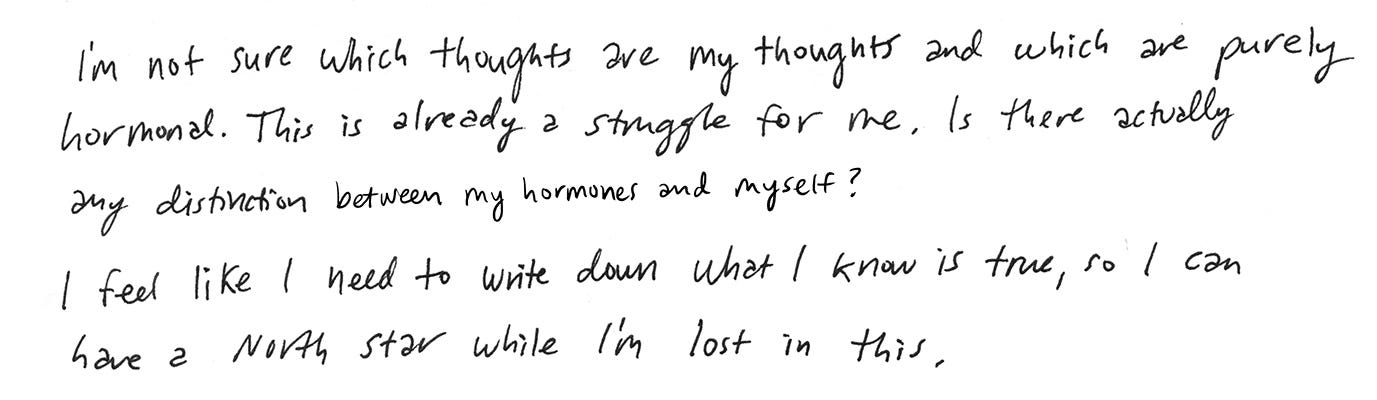 I'm not sure which thoughts are my thoughts and which are purely
hormonal. This is already a struggle for me. Is there actually
any distinction between my hormones and myself?
I feel like I need to write down what I know is true, so I can
have a North star while I'm lost in this.